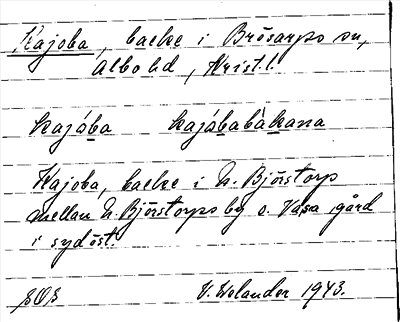 Kajoba, backe i Brösarps sn,
Albo hd, Krist. l.
kajába kajábabàkana
Kajoba, backe i N. Björstorp
mellan N. Björstorps by o. Vasa gård
i sydöst.
V. Welander 1943.